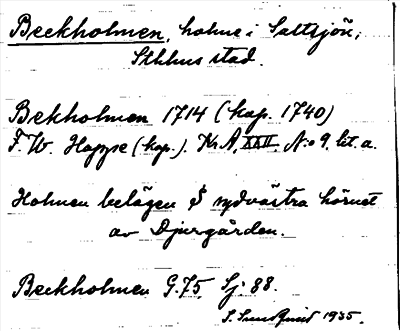 Beckholmen, holme i Saltsjön,
Sthlms stad.
Bekholmen 1714 (kop. 1740)
F. W. Hoppe (kop.). Kr.A. XXII. N:o 9. lit. a.
Holmen belägen S sydvästra hörnet
av Djurgården.
Beckholmen G.75. Sj: 88.
1935.